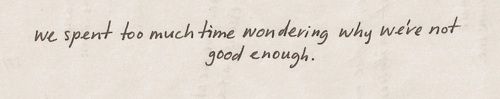 we spent too much time wondering why we're not
good enough.